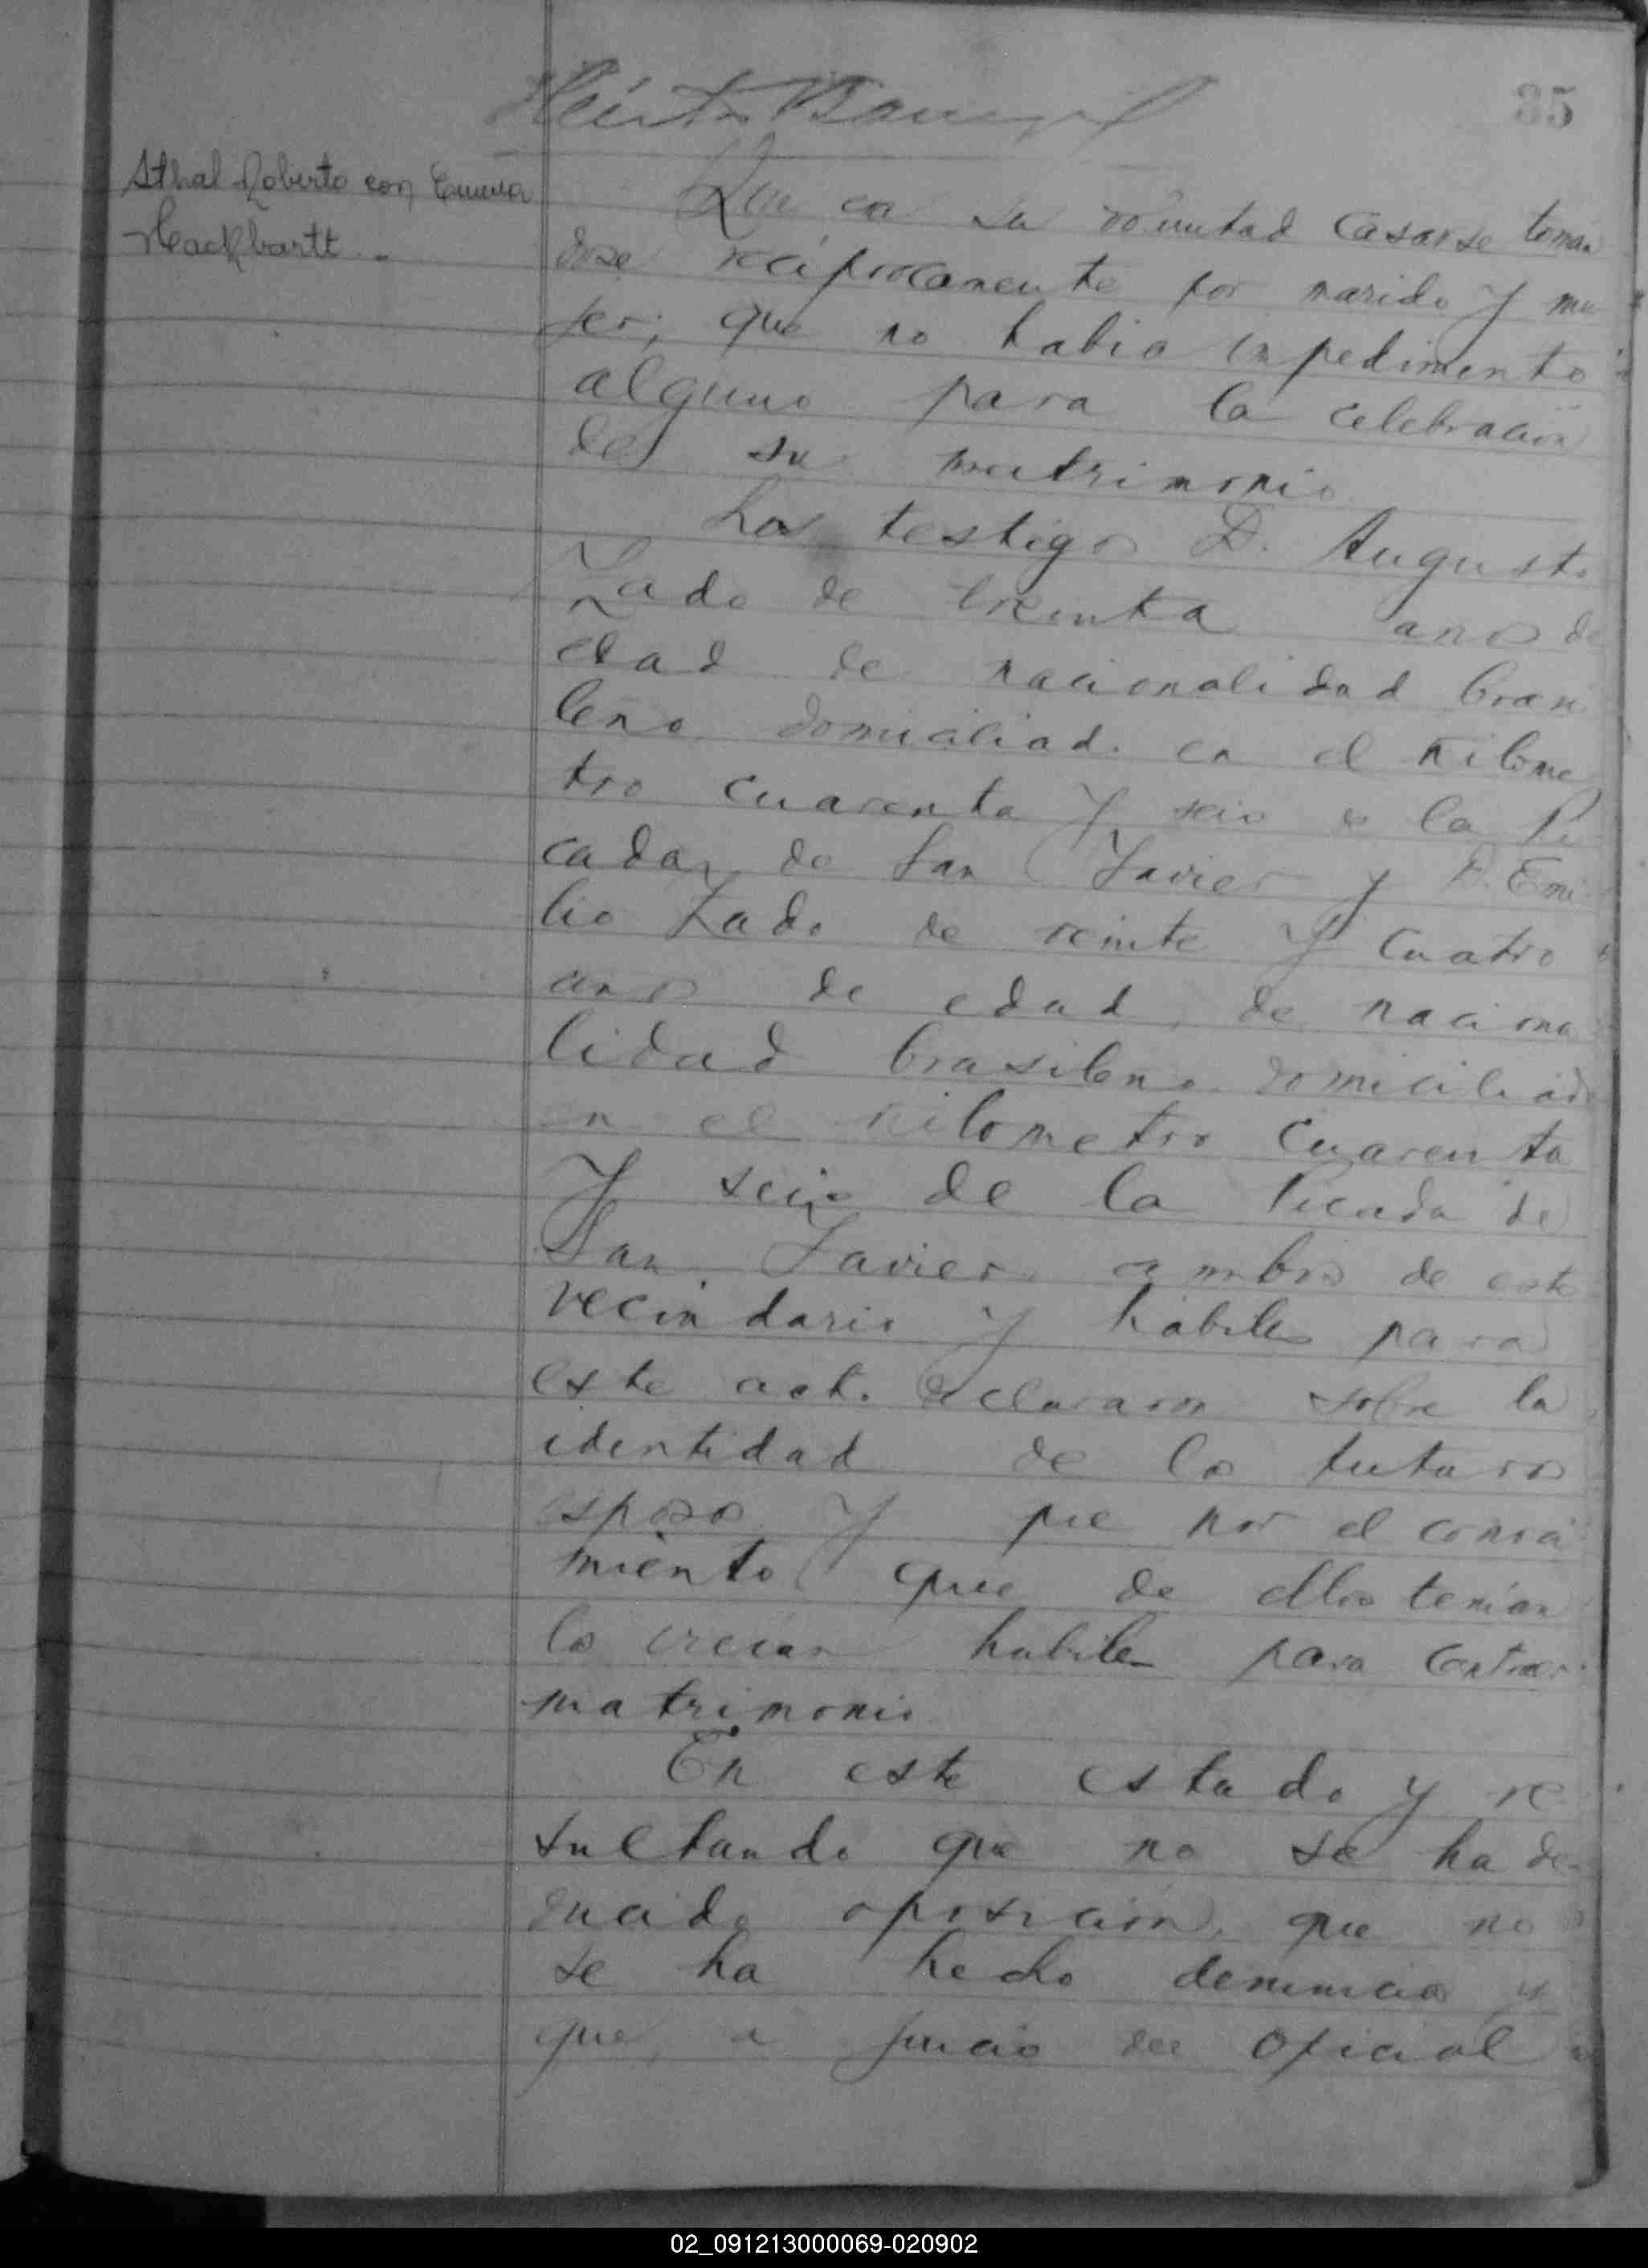 35
Sthal Roberto con Emma
Hackbartt.
Que era su voluntad casarse toman
dose reciprocamente por marido y mu
jer; que no habia impedimento
alguno para la celebración
de su matrimonio.
Los testigos D. Augusto
Zado de treinta anos de
edad de nacionalidad brasi
leno domiciliado en el kilome
tro cuarenta y seis de la Pi
cada de San Javier y D. Emi
lio Zado de veinte y cuatro
anos de edad, de naciona
lidad brasileno domiciliado
en el kilometro cuarenta
y seis de la Picada de
San Javier ambos de este
vecindario y hábiles para
este acto declararon sobre la
identidad de los futuros
esposos y que por el conoci
miento que de ellos tenían
los creían habiles para contraer
matrimonio
En este estado y re
sultando que no se ha de
ducido oposición, que no
se ha hecho denuncia y
que, a juicio del oficial
02_091213000069-020902